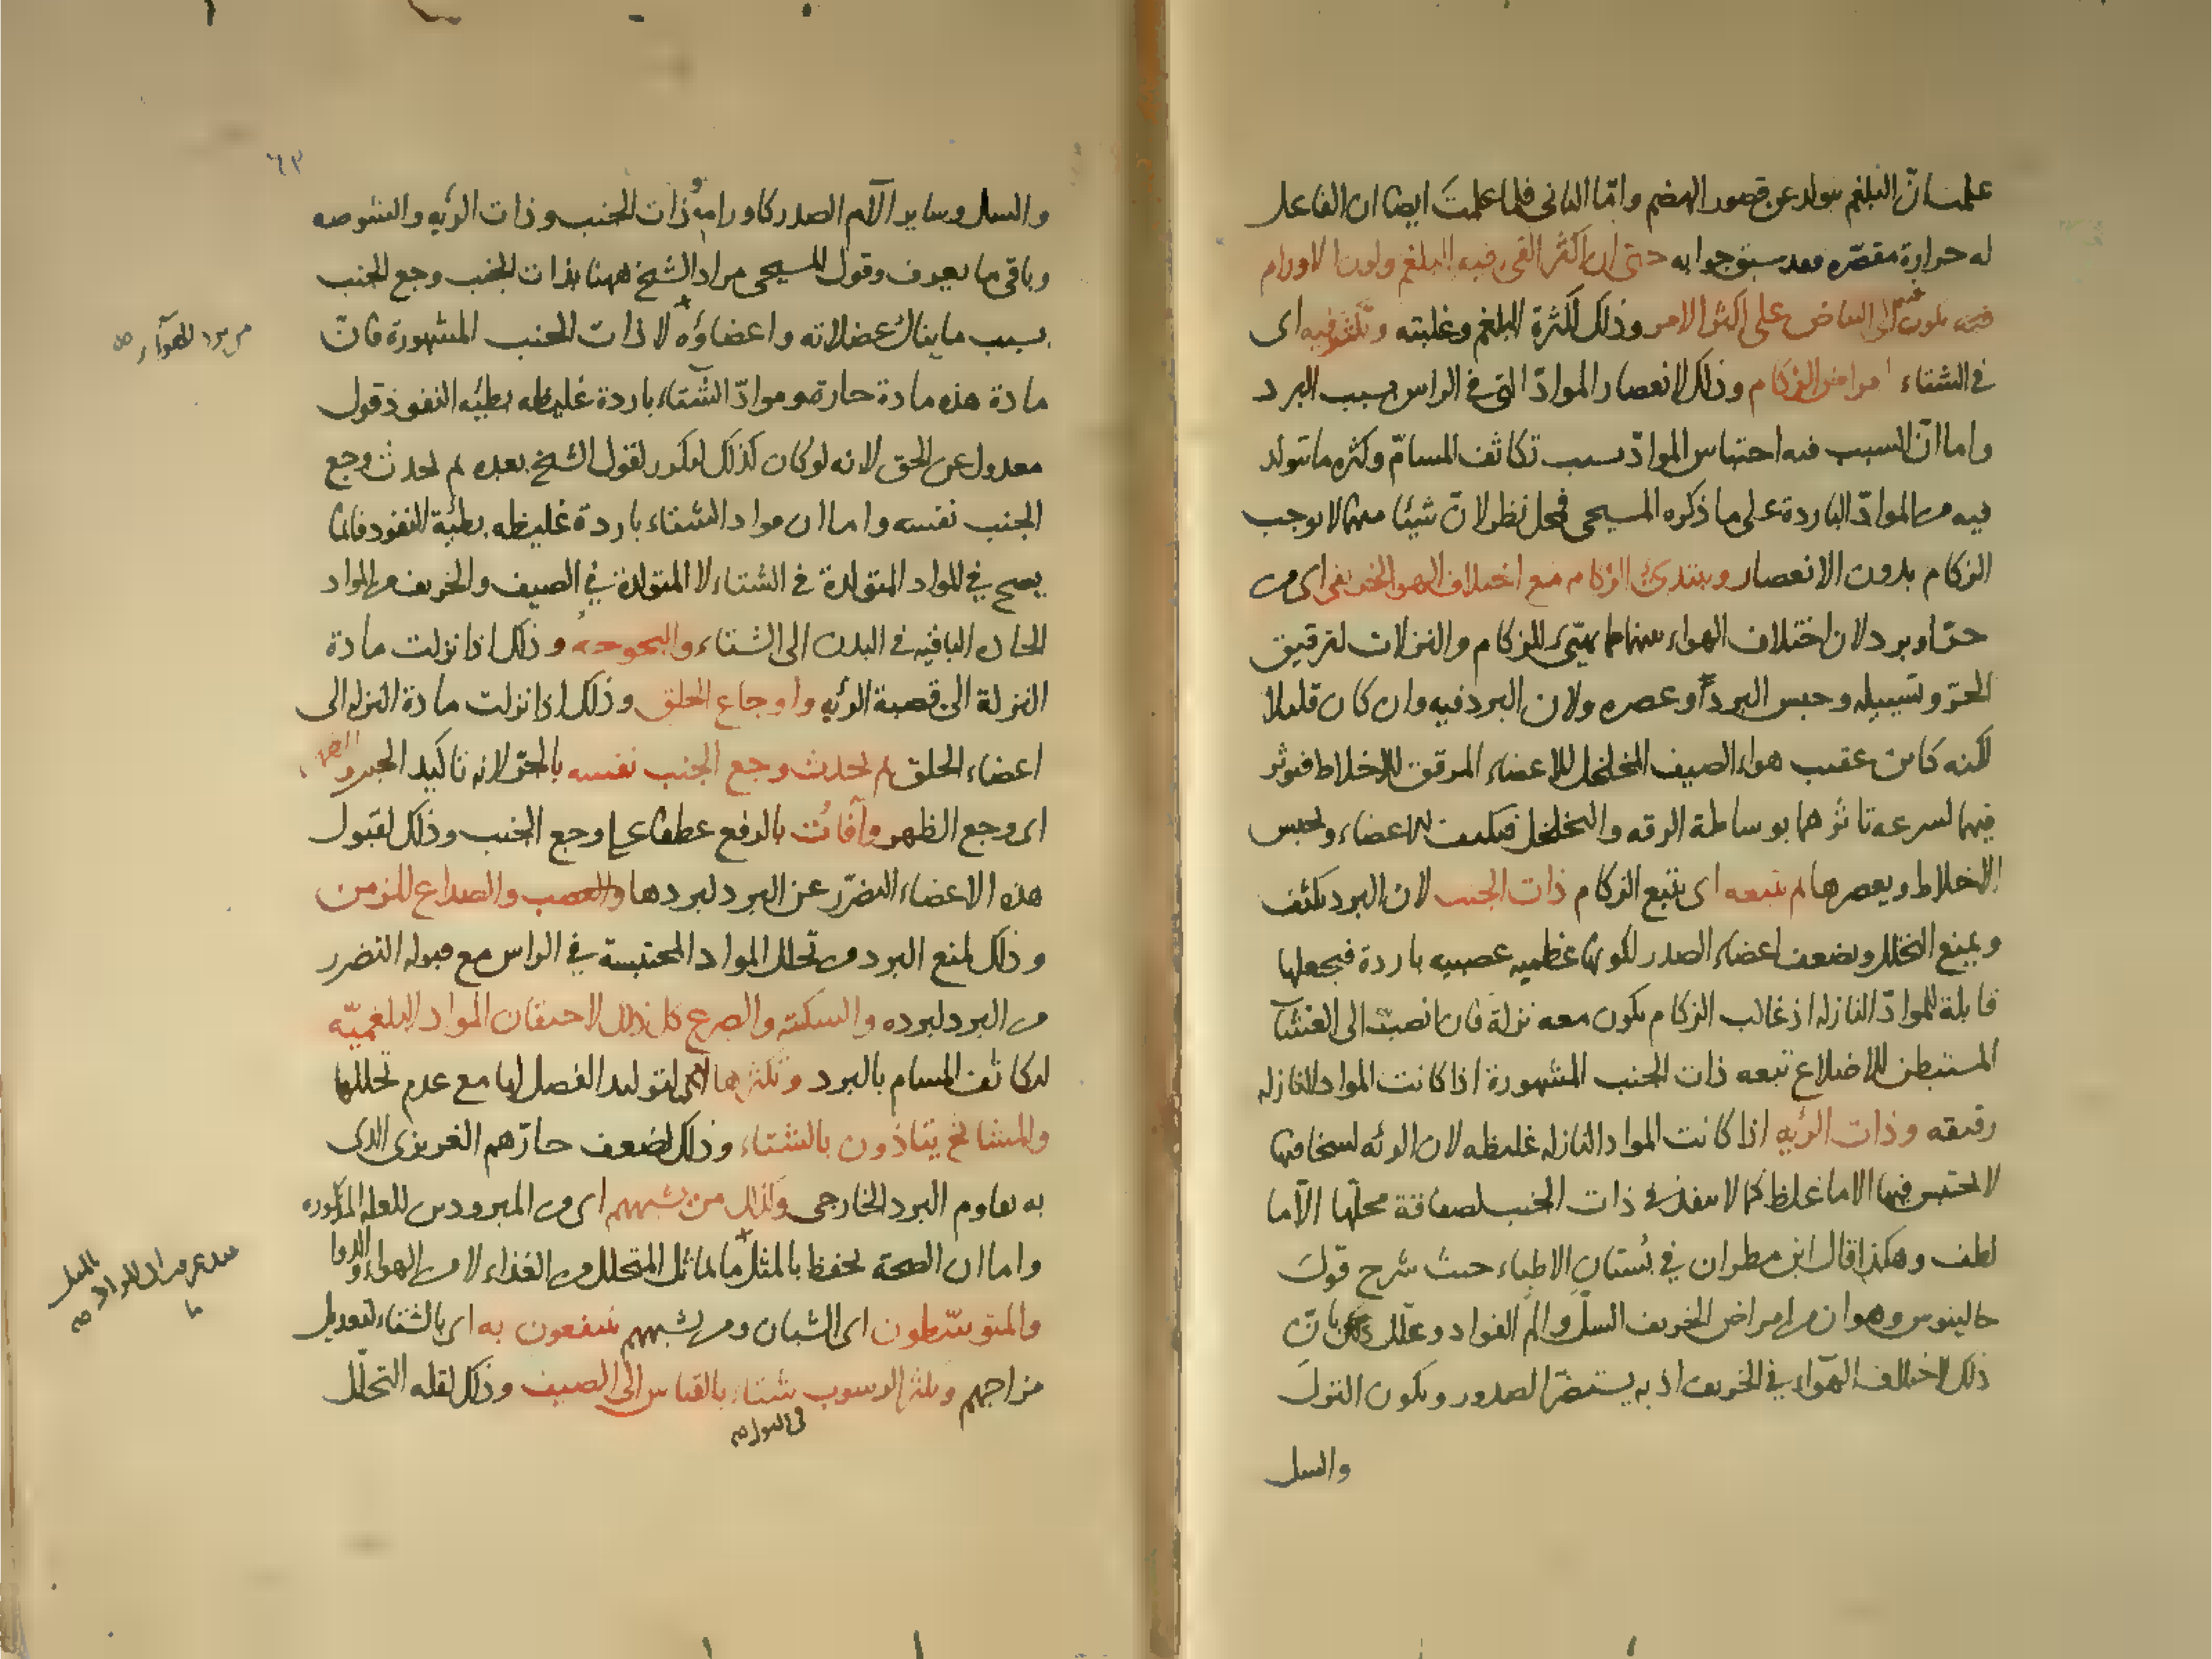 علمت انّ البلغم يتولد عن قصور الهضم وامّا الثانى فلما علمتَ ايضا ان الفاعل
له حرارة مقصّره فقد سبق جوابه حتى ان اكثر القى فيه البلغم ولون الاورام
فيه يكون الى البياض على اكثر الامر وذلك لكثرة البلغم وغلبته وتكثر فيه اى
فى الشتاء امراض الزكام وذلك لانعصار الموادّ التى فى الراس بسبب البرد
واما انّ السبب فيه احتباس الموادّ بسبب تكاثف المسامّ وكثره ما يتولد
فيه من الموادّ الباردة على ما ذكره المسيحى فمحل نظر لانّ شيئا منهما لا يوجب
الزكام بدون الانعصار ويبتدئ الزكام مع اختلاف الهوا الخريفى اى من
حرّ او برد لان اختلاف الهواء بينهما مما يهيّئ للزكام والنزلات لترقيق
الحرّ وتسييله وحبس البرد وعصره ولان البرد فيه وان كان قليلا
لكنه كائن عقيب هواء الصيف المخلخل للاعضاء المرقق للاخلاط فيوثر
فيهما لسرعه تاثرهما بوساطة الرقه والتخلخل فيكثف الاعضاء ويحبس
الاخلاط ويعصرها ثم يتبعه اى يتبع الزكام ذات الجنب لان البرد يكثف
ويمنع التحلل ويضعف اعضاء الصدر لكونها عظميه عصبيه باردة فيجعلها
قابلة للموادّ النازله اذ غالب الزكام يكون معه نزلة فان انصبت الى الغشآ
المستبطن للاضلاع تبعه ذات الجنب المشهورة اذا كانت المواد النازله
رقيقه وذات الرئه اذا كانت المواد النازله غليظه لان الرئه لسخافتها
لا يحتبس فيها الا ما غلظ كما لا ينفذ فى ذات الجنب لصفاقة محلّها الّا ما
لطف وهكذا قال ابن مطران فى بُستان الاطباء حيث شرح قول
جالينوس وهو ان من امراض الخريف السلّ والم الفواد وعلّل بانّ
ذلك لاختلاف الهوآء فى الخريف اذ به يستضرّ الصدور ويكون النزل
والسل
٦٣
والسل وساير آلام الصدر كاورامه وذات الجنب وذات الرئه والشوصه
وباقى ما يعرف وقول المسيحى مراد الشيخ ههنا بذات الجنب وجع الجنب
بسبب ما ينال عضلاته واعضاؤه لا ذات الجنب المشهورة فانّ
من برد الهوآء صح
مادة هذه مادة حارة وموادّ الشتاء باردة غليظه بطيئه النفوذ قول
معدول عن الحق لانه لو كان كذلك لم يكن لقول الشيخ بعده ثم يحدث وجع
الجنب نفسه واما ان مواد الشتاء باردة غليظه بطيئة النفوذ فانما
يصح فى المواد المتولدة فى الشتاء لا المتولدة فى الصيف والخريف من المواد
الحاره الباقيه فى البدن الى الشتاء والبحوحه وذلك اذا نزلت مادة
النزلة الى قصبة الرئه واوجاع الحلق وذلك اذا نزلت مادة النزله الى
اعضاء الحلق ثم يحدث وجع الجنب نفسه بالجرّ لانه تاكيد الجنب والظهر
اى وجع الظهر وآفاتُ بالرفع عطفا على وجع الجنب وذلك لقبول
هذه الاعضاء التضرّر عن البرد لبردها والعصب والصداع المزمن
وذلك لمنع البرد من تحلل المواد المحتبسة فى الراس مع قبوله التضرر
من البرد لبرده والسكته والصرع كل ذلك لاحتقان المواد البلغميّه
لتكاثف المسام بالبرد وتكثرها اى لتوليد الفصل لها مع عدم تحللها
والمشائخ يتاذون بالشتاء وذلك لضعف حارّهم الغريزى الذى
به يقاوم البرد الخارجى وكذلك من يشبههم اى من المبرودين للعله المذكوره
واما ان الصحة تحفظ بالمثل ما يماثل المتحلل من الغذاء لا من الهواء والدوا
والمتوسّطون اى الشبان ومن يشبههم ينتفعون به اى بالشتاء لتعديل
مزاجهم ويكثر الرسوب شتاء بالقياس الى الصيف وذلك لقله التحلّل
فى البول صح